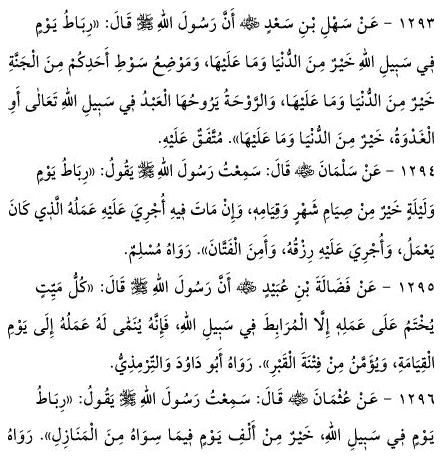 ١٢٩٣ - عَنْ سَهْلِ بْنِ سَعْدٍ ﵁ أَنَّ رَسُولَ اللهِ ﷺ قَالَ: «رِبَاطُ يَوْمٍ
فِي سَبِيلِ اللهِ خَيْرٌ مِنَ الدُّنْيَا وَمَا عَلَيْهَا، وَمَوْضِعُ سَوْطِ أَحَدِكُمْ مِنَ الْجَنَّةِ
خَيْرٌ مِنَ الدُّنْيَا وَمَا عَلَيْهَا، وَالرَّوْحَةُ يَرُوحُهَا الْعَبْدُ فِي سَبِيلِ اللهِ تَعَالٰى أَوِ
الْغَدْوَةُ، خَيْرٌ مِنَ الدُّنْيَا وَمَا عَلَيْهَا». مُتَّفَقٌ عَلَيْهِ.
١٢٩٤ - عَنْ سَلْمَانَ ﵁ قَالَ: سَمِعْتُ رَسُولَ اللهِ ﷺ يَقُولُ: «رِبَاطُ يَوْمٍ
وَلَيْلَةٍ خَيْرٌ مِنْ صِيَامِ شَهْرٍ وَقِيَامِهِ، وَإِنْ مَاتَ فِيهِ أُجْرِيَ عَلَيْهِ عَمَلُهُ الَّذِي كَانَ
يَعْمَلُ، وَأُجْرِيَ عَلَيْهِ رِزْقُهُ، وَأَمِنَ الْفَتَّانَ». رَوَاهُ مُسْلِمٌ.
١٢٩٥ - عَنْ فَضَالَةَ بْنِ عُبَيْدٍ ﵁ أَنَّ رَسُولَ اللهِ ﷺ قَالَ: «كُلُّ مَيِّتٍ
يُخْتَمُ عَلَى عَمَلِهِ إِلَّا الْمُرَابِطَ فِي سَبِيلِ اللهِ، فَإِنَّهُ يُنَمّٰى لَهُ عَمَلُهُ إِلَى يَوْمِ
الْقِيَامَةِ، وَيُؤَمَّنُ مِنْ فِتْنَةِ الْقَبْرِ». رَوَاهُ أَبُو دَاوُدَ وَالتِّرْمِذِيُّ.
١٢٩٦ - عَنْ عُثْمَانَ ﵁ قَالَ: سَمِعْتُ رَسُولَ اللهِ ﷺ يَقُولُ: «رِبَاطُ
يَوْمٍ فِي سَبِيلِ اللهِ، خَيْرٌ مِنْ أَلْفِ يَوْمٍ فِيمَا سِوَاهُ مِنَ الْمَنَازِلِ». رَوَاهُ